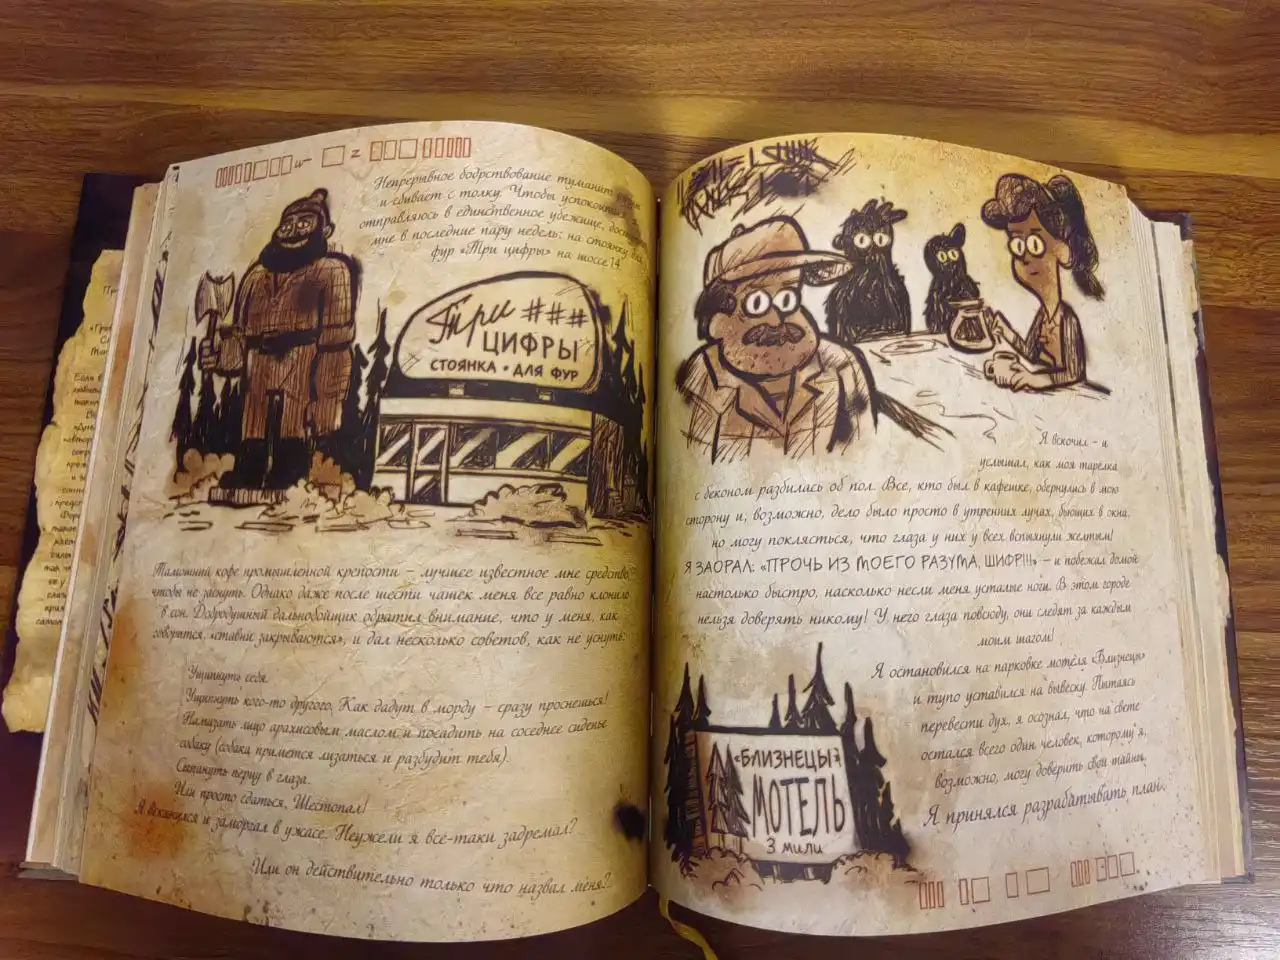 Непрерывное бодрствование туманит
и сбивает с толку. Чтобы успокоиться,
отправляюсь в единственное убежище,
мне в последние пару недель: на стоянку для
фур «Три цифры» на шоссе 14.
Три ###
ЦИФРЫ
СТОЯНКА • ДЛЯ ФУР
Тамошний кофе промышленной крепости – лучшее известное мне средство,
чтобы не заснуть. Однако даже после шести чашек меня все равно клонило
в сон. Добродушный дальнобойщик обратил внимание, что у меня, как
говорится, «ставни закрываются», и дал несколько советов, как не уснуть:
Ущипнуть себя.
Ущипнуть кого-то другого. Как дадут в морду – сразу проснешься!
Намазать лицо арахисовым маслом и посадить на соседнее сиденье
собаку (собака примется лизаться и разбудит тебя).
Сыпануть перцу в глаза.
Или просто сдаться, Шестопал!
Я вскинулся и заморгал в ужасе. Неужели я всё-таки задремал?
Или он действительно только что назвал меня?..
Я вскочил – и
услышал, как моя тарелка
с беконом разбилась об пол. Все, кто был в кафешке, обернулись в мою
сторону и, возможно, дело было просто в утренних лучах, бьющих в окна,
но могу поклясться, что глаза у них у всех вспыхнули желтым!
Я ЗАОРАЛ: «ПРОЧЬ ИЗ МОЕГО РАЗУМА, ШИФР!!!» – и побежал домой
настолько быстро, насколько несли меня усталые ноги. В этом городе
нельзя доверять никому! У него глаза повсюду, они следят за каждым
моим шагом!
Я остановился на парковке мотеля «Близнецы»
и тупо уставился на вывеску. Пытаясь
перевести дух, я осознал, что на свете
остался всего один человек, которому я,
возможно, могу доверить свои тайны.
Я принялся разрабатывать план.
«БЛИЗНЕЦЫ»
МОТЕЛЬ
3 МИЛИ